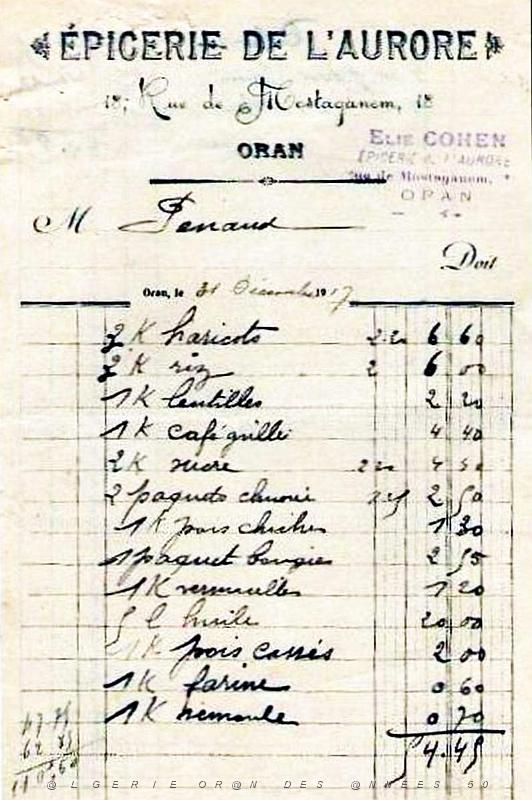 ÉPICERIE DE L'AURORE
18, Rue de Mostaganem, 18
ORAN
ELIE COHEN
ÉPICERIE DE L'AURORE
Rue de Mostaganem,
ORAN
M Penaud
Doit
Oran, le 31 Décembre 1917
3 K haricots 2.20 6 60
3 K riz 2 6 00
1 K lentilles 2 20
1 K café grillé 4 40
2 K sucre 2 20 4 40
2 paquets 2 50
1 K pois chiches 1 30
1 paquet bougies 2 55
1 K vermicelles 1 20
5 l huile 20 00
1 K pois cassés 2 00
1 K farine 0 60
1 K semoule 0 70
54.45
@LGERIE OR@N DES @NNÉES 50